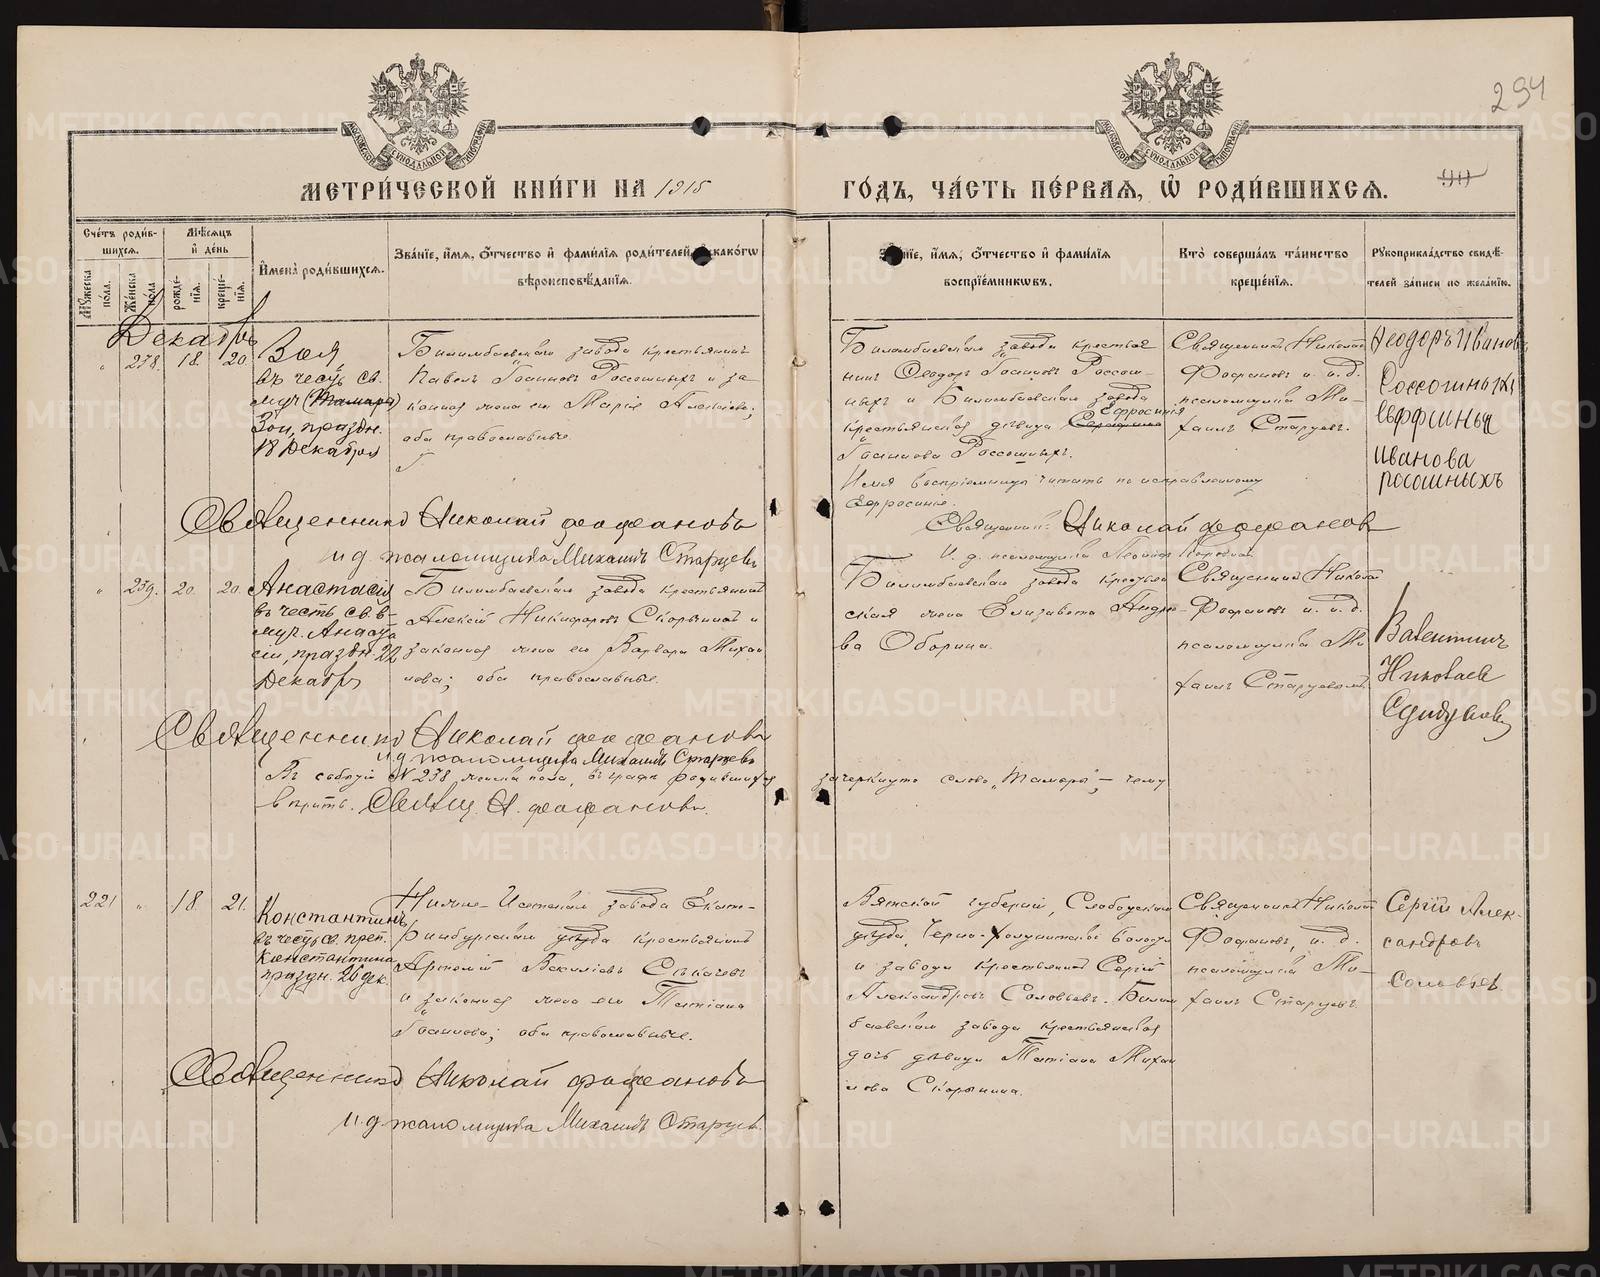 294
МЕТРИ́ЧЕСКОЙ КНИ́ГИ НА 1915
ГО́ДЪ, ЧА́СТЬ ПЕ́РВАѦ, Ѡ҆ РОДИ́ВШИХСѦ.
90
Сче́тъ роди́в-
шихсѧ.
Мѣ́сѧцъ
и҆ де́нь
Мꙋжеска по́ла.
Же́нска по́ла
рожде́-
нїѧ.
креще́-
нїѧ.
И҆мена̀ роди́вшихсѧ.
Зва́нїе, и҆́мѧ, ѻ҆́тчество и҆ фами́лїѧ роди́телей,
какогѡ
вѣроисповѣ́данїѧ.
и҆́мѧ, ѻ҆́тчество и҆ фами́лїѧ
воспрїе́мникѡвъ.
Кто̀ соверша́лъ та́инство
креще́нїѧ.
Рꙋкоприкла́дство свидѣ́-
телей за́писи по жела́нїю.
Декабрь
" 238. 18. 20.
Зоя
въ честь св.
муч. (Тамары)
Зои, праздн.
18 Декабря
Билимбаевскаго завода крестьянинъ
Павелъ Іоанновъ Россошныхъ и за-
конная жена его Марія Алексѣева;
оба православные.
Билимбаевскаго завода крестья-
нинъ Ѳеодоръ Іоанновъ Россош-
ныхъ и Билимбаевскаго завода
Ефросинія
крестьянская дѣвица
Іоаннова Россошныхъ.
Имя воспріемницы читать по исправленному
Ефросинія.
Священникъ Николай
Феофановъ и и. д.
псаломщика Ми-
хаилъ Старцевъ.
Ѳеодоръ Иванов
Россошныхъ
Иванова
росошныхъ
Священникъ Николай Феофановъ
И д псаломщика Михаилъ Старцевъ
Священникъ Николай Феофанов
И. д. псаломщика
" 239. 20. 20.
Анастасія
въ честь св. в-
муч. Анаста
сіи, праздн. 22
Декабря
Билимбаевскаго завода крестьянинъ
Алексій Никифоровъ Скорынинъ и
законная жена его Варвара Михаи
лова; оба православные.
Билимбаевскаго завода крестьян
ская жена Елизавета Андрее-
ва Оборина.
Священникъ Николай
Феофановъ и и. д.
псаломщика Ми
хаилъ Старцевъ
Валентинъ
Николаев
Священникъ Николай Феофановъ
И д псаломщика Михаилъ Старцевъ
Въ N 238, женска пола, въ графѣ родившихся
зачеркнуто слово „Тамары", – чему
вѣрить. Священ. Н. Феофановъ.
221 " 18 21.
Константинъ
въ честь св. преп.
Константина
праздн. 26 дек.
Нижне-Исетскаго завода Екате-
ринбургскаго уѣзда крестьянинъ
Артемій Василіевъ Сѣкачевъ
и законная жена его Татіана
Іоаннова; оба православные.
Вятской губерніи, Слободскаго
уѣзда, Черно-Холуницкой волости
и завода крестьянинъ Сергій
Александровъ Соловьевъ. Билим
баевскаго завода крестьянская
дочь дѣвица Татіана Михаи
лова Скорынина.
Священникъ Николай
Феофановъ, и. д.
псаломщика Ми-
хаилъ Старцевъ.
Сергій Алек-
сандровъ
Соловьев.
Священникъ Николай Феофановъ
И. д. псаломщика Михаилъ Старцевъ.